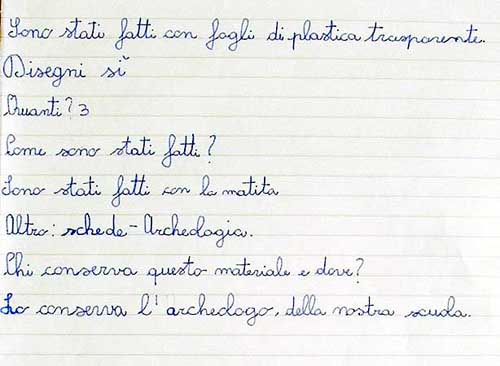 Sono stati fatti con fogli di plastica trasparente.
Disegni sì
Quanti? 3
Come sono stati fatti?
Sono stati fatti con la matita
Altro: schede - Archeologia.
Chi conserva questo materiale e dove?
Lo conserva l'archeologo, della nostra scuola.